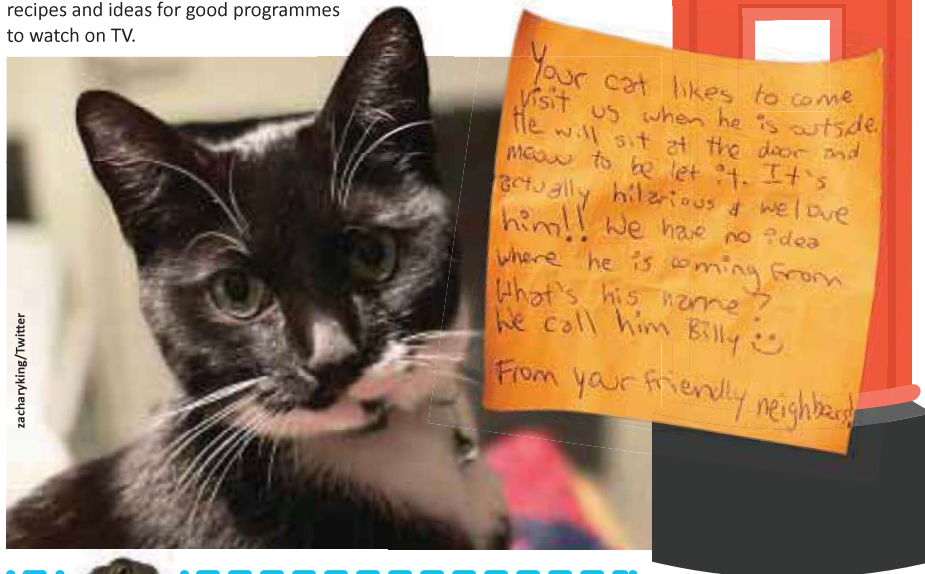 recipes and ideas for good programmes
to watch on TV.
Your cat likes to come
visit us when he is outside.
He will sit at the door and
meow to be let it. It's
actually hilarious & we love
him!! We have no idea
where he is coming from
What's his name?
We call him Billy
From your friendly neighbours!
zacharyking/Twitter